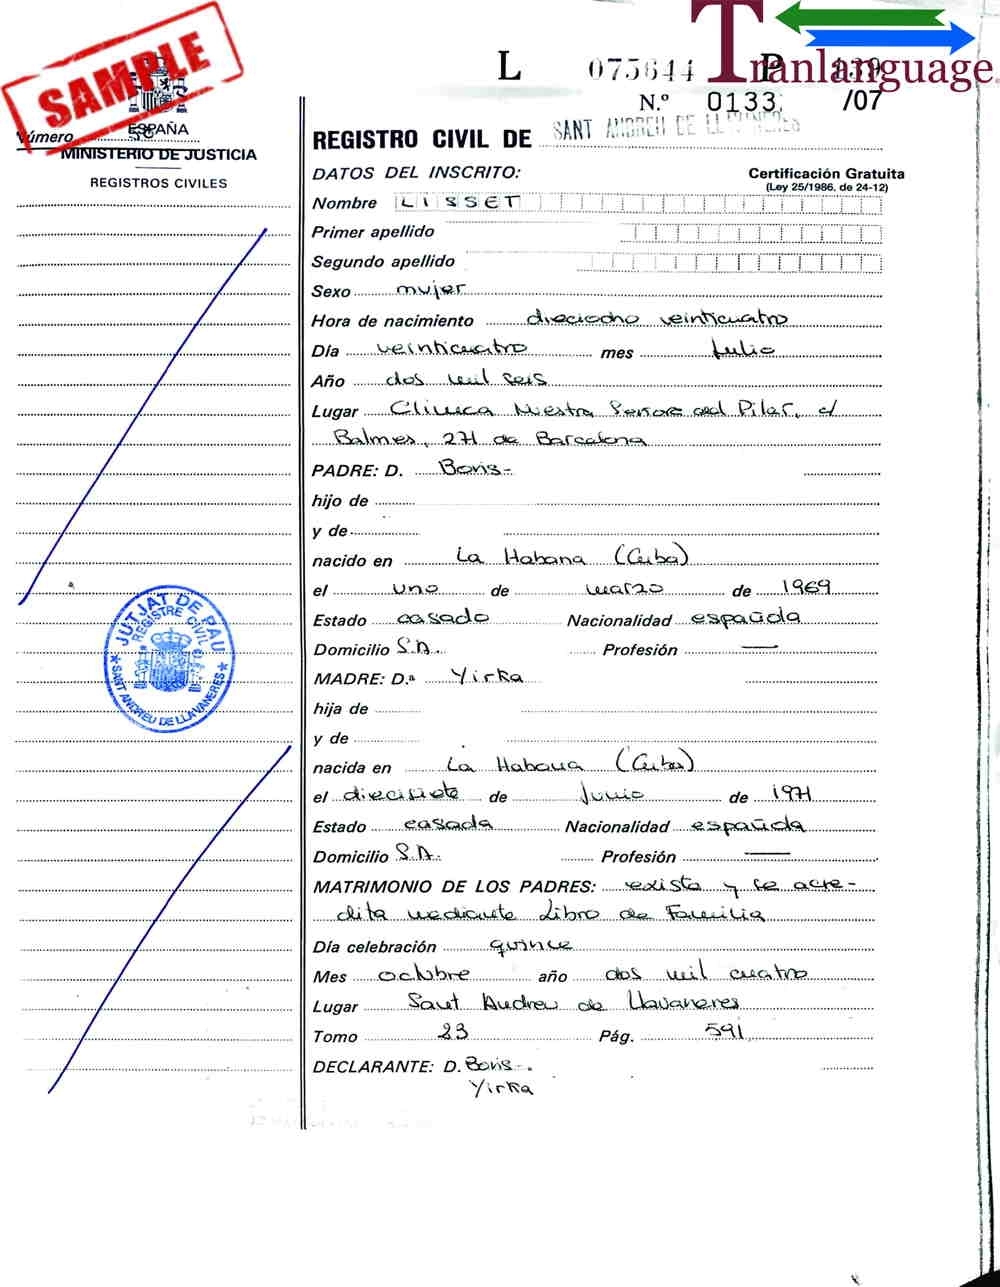 SAMPLE
Tranlanguage
L 075644 P 139
N.º 0133 /07
ESPAÑA
Número
MINISTERIO DE JUSTICIA
REGISTROS CIVILES
REGISTRO CIVIL DE SANT ANDREU DE LLAVANERES
DATOS DEL INSCRITO:
Certificación Gratuita
(Ley 25/1986, de 24-12)
Nombre LISSET
Primer apellido
Segundo apellido
Sexo mujer
Hora de nacimiento dieciocho veinticuatro
Día veinticuatro mes Julio
Año dos mil seis
Lugar Clínica Nuestra Señora del Pilar, c/
Balmes, 271 de Barcelona
PADRE: D. Boris-
hijo de
y de
nacido en La Habana (Cuba)
el uno de marzo de 1969
Estado casado Nacionalidad española
Domicilio S.A. Profesión —
MADRE: D.ª Yirka
hija de
y de
nacida en La Habana (Cuba)
el diecisiete de Junio de 1971
Estado casada Nacionalidad española
Domicilio S.A. Profesión —
MATRIMONIO DE LOS PADRES: existe y se acre-
dita mediante Libro de Familia
Día celebración quince
Mes octubre año dos mil cuatro
Lugar Sant Andreu de Llavaneres
Tomo 23 Pág. 591
DECLARANTE: D. Boris-.
Yirka
JUTJAT DE PAU
REGISTRE CIVIL
SANT ANDREU DE LLAVANERES